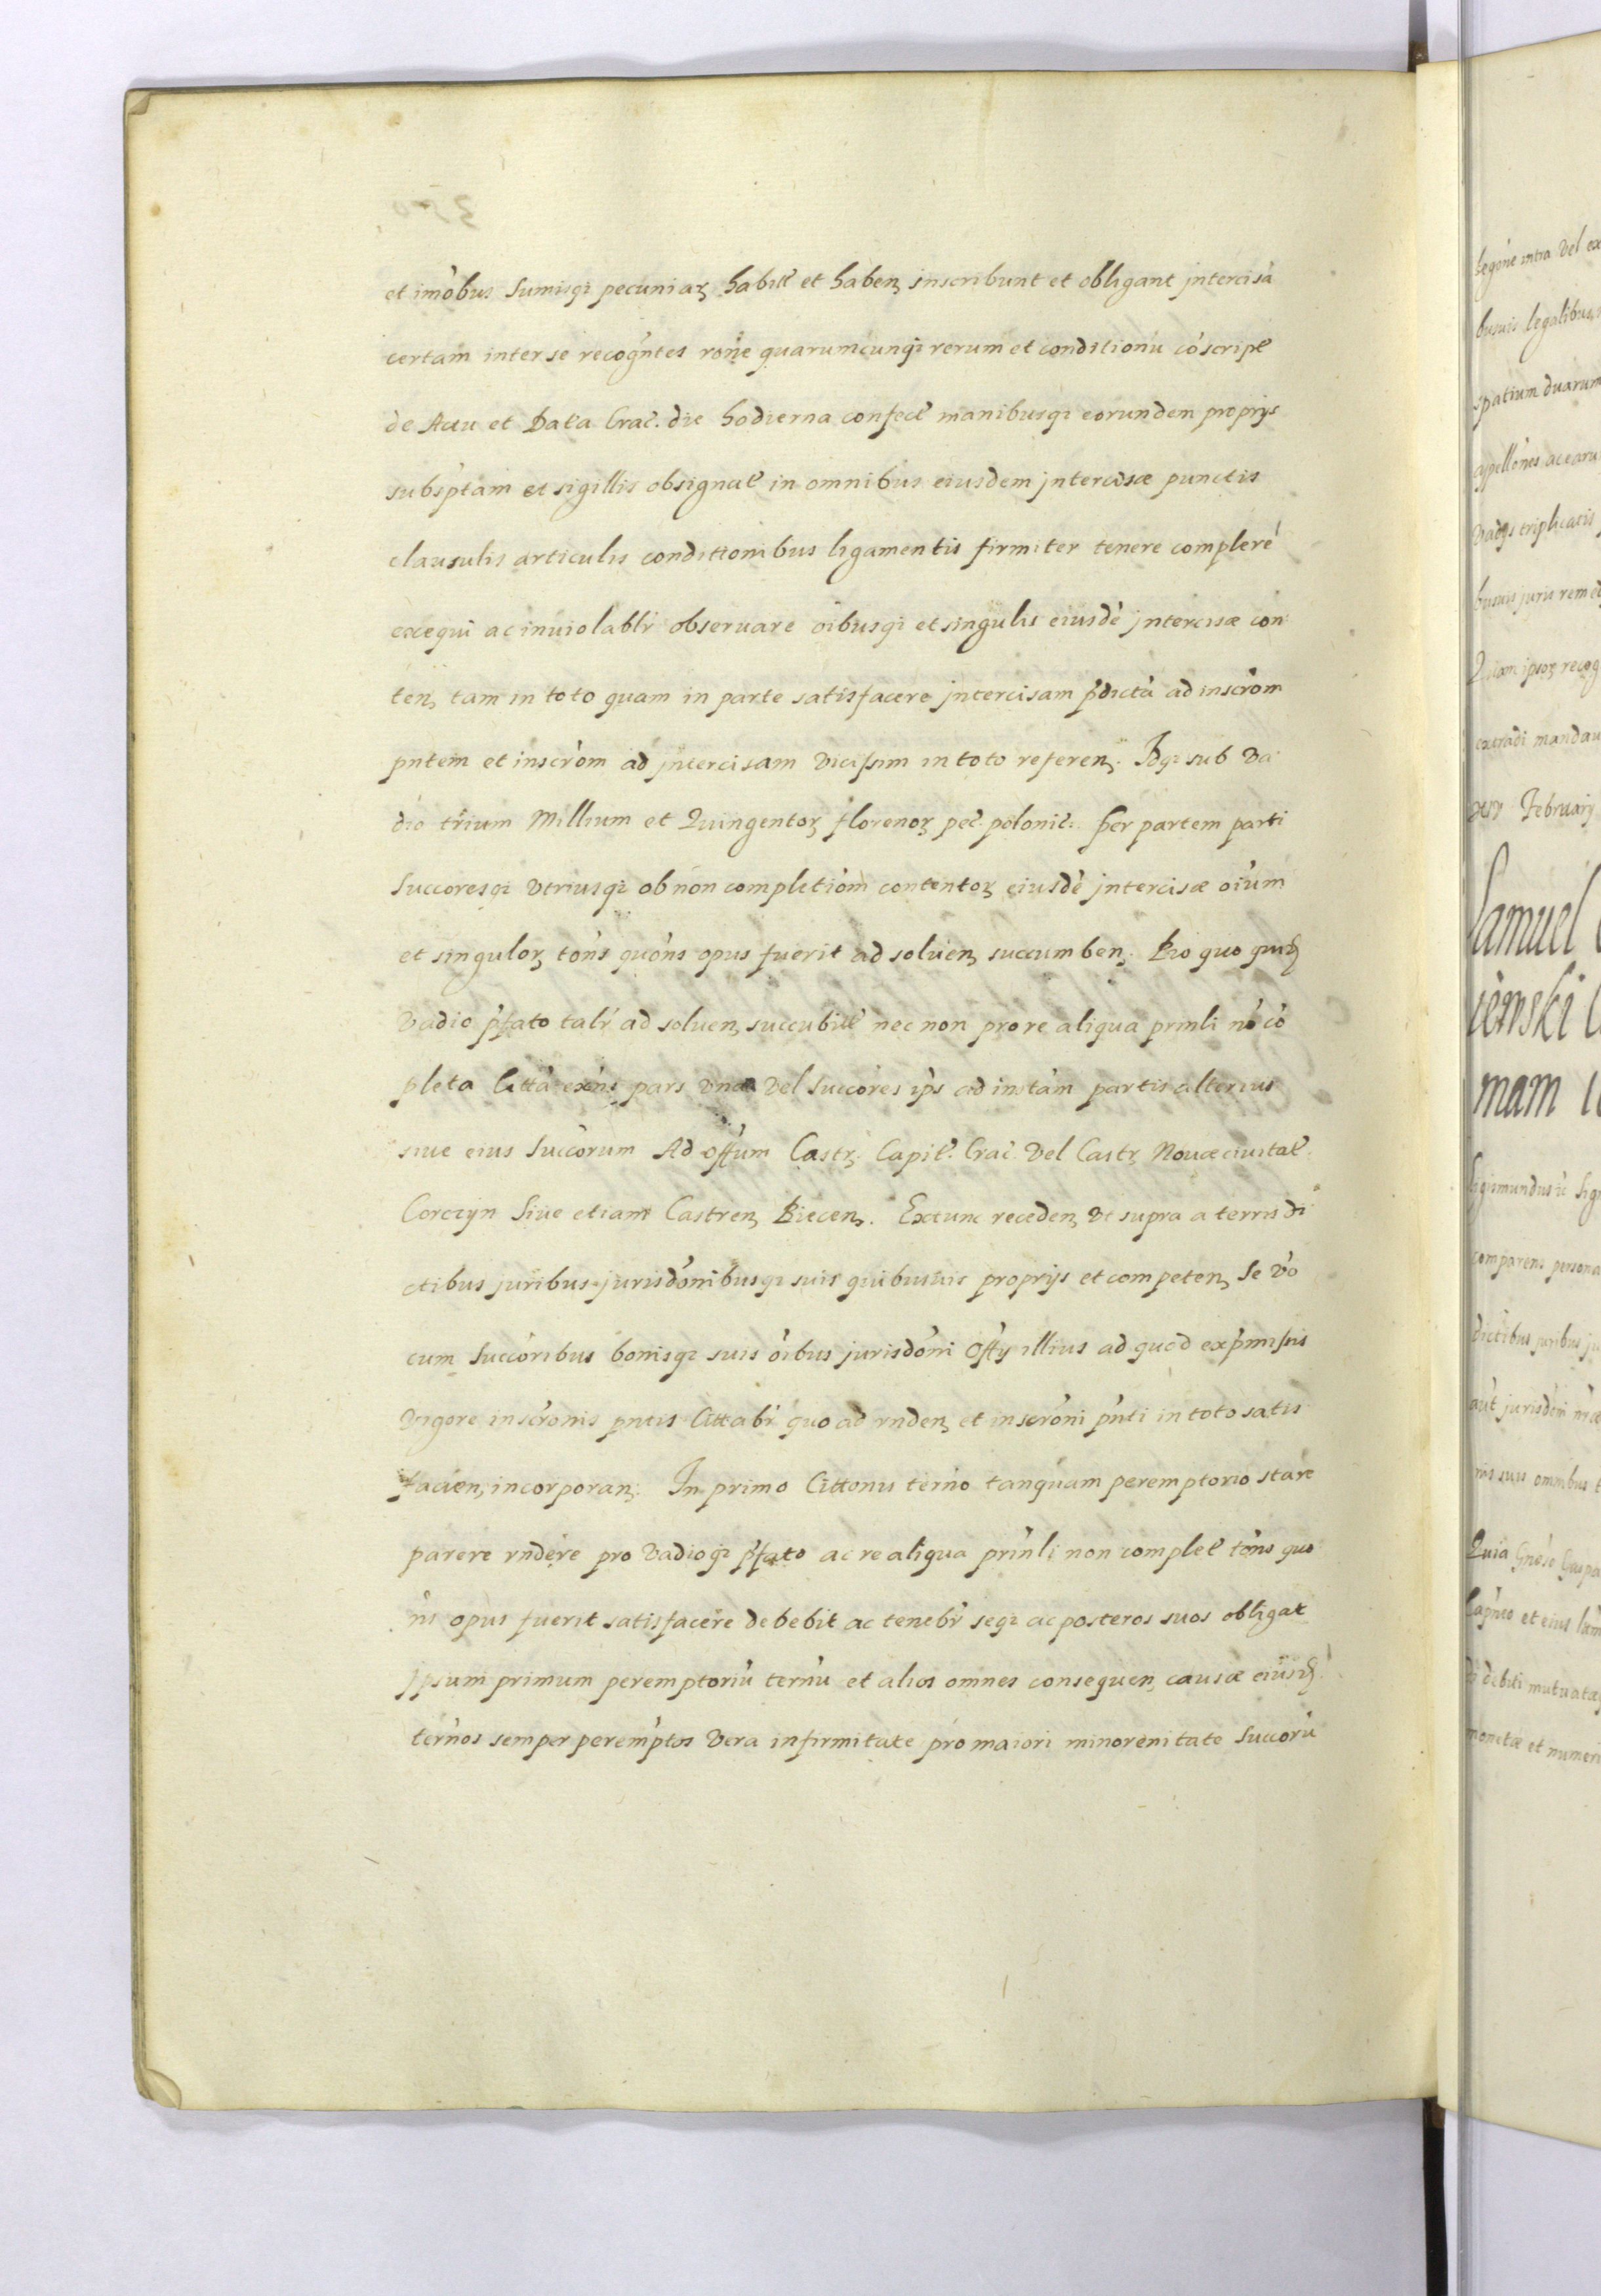 et imobus sumisq₃ pecuniaꝝ habit et haben₃ inscribunt et obligant intercisã
certam inter se recogntes rone quarumcunq₃ rerum et conditionũ cõscript
de Actu et Data Crac. die hodierna confect manibusq₃ eorundem proprijs
subsptam et sigillis obsignat in omnibus eiusdem jntercisæ punctis
clausulis articulis conditionibus ligamentis firmiter tenere complere
exequi ac inuiolablr observare oibusq₃ et singulis eiusdẽ jntercisæ con
ten₃ tam in toto quam in parte satisfacere jntercisam pdictã ad inscrõm
pntem et inscrõm ad jntercisam vicissim in toto referen₃. Idq₃ sub va
dio trium Millium et Quingentoꝝ florenoꝝ pec. polonic. per partem parti
Succoresq₃ vtriusq₃ ob non completiom contentoꝝ eiusdẽ jntercisæ oium
et singuloꝝ tons quons opus fuerit ad soluen₃ succumben₃. Pro quo quid₃
vadio pfato talr ad soluen₃ succubit nec non pro re aliqua prinli nõ cõ
pleta Citta exns pars vna vel Succores ips ad instam partis alterius
siue eius Succorum Ad Offum Castr₃ Capit. Crac. vel Castr₃ Nouæciuitat.
Corczyn Siue etiam Castren₃ Biecen₃. Extunc receden₃ vt supra a terris di
ctibus juribus jurisdonibusq₃ suis quibusuis proprijs et competen₃ Se vo
cum Succoribus bonisq₃ suis oibus jurisdoni Offy illius ad quod ex pmissis
vigore inscronis pntis Cittabr quo ad rnden₃ et inscroni pnti in toto satis
facien₃ incorporan₃. In primo Cittonis terno tanquam peremptorio stare
parere rndere pro vadioq₃ pfato ac re aliqua prinli non complet tons quo
ns opus fuerit satisfacere debebit ac tenebr seq₃ ac posteros suos obligat
Ipsum primum peremptoriũ ternũ et alios omnes consequen₃ causæ eiusd₃
ternos semper peremptos vera infirmitate pro maiori minorenitate Succorũ
legõne intra vel ex
busuis legalibus
spatium duarum
appellones acearu
vadijs triplicatis
busuis juris remed
extradi mandau
February
Samuel
mam
comparens persona
dictibus juribus ju
aut jurisdoni
suis omnibus
Quia
et eius
debiti mutuatæ
monetæ et numeri